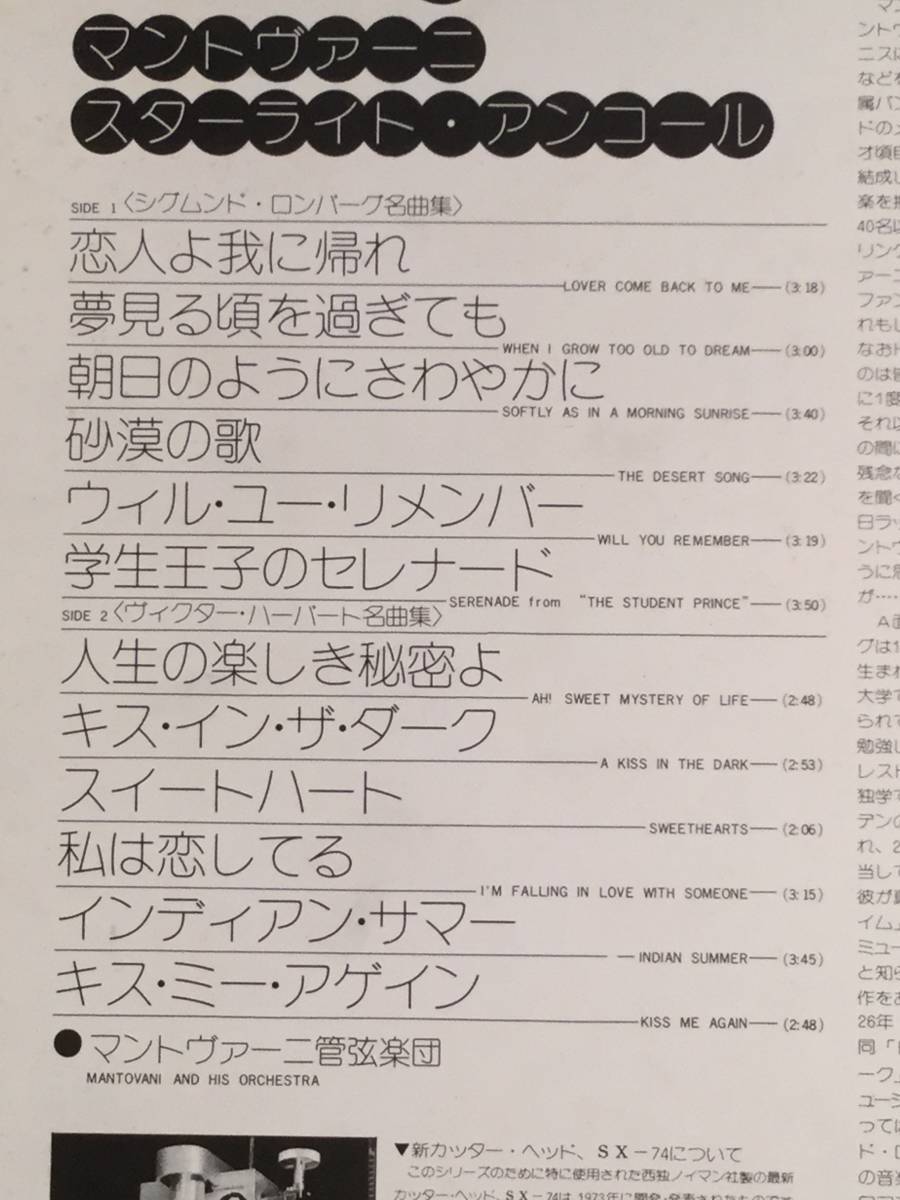 マントヴァーニ
スターライト・アンコール
SIDE 1〈シグムンド・ロンバーグ名曲集〉
恋人よ我に帰れ
LOVER COME BACK TO ME——(3:18)
夢見る頃を過ぎても
WHEN I GROW TOO OLD TO DREAM——(3:00)
朝日のようにさわやかに
SOFTLY AS IN A MORNING SUNRISE——(3:40)
砂漠の歌
THE DESERT SONG——(3:22)
ウィル・ユー・リメンバー
WILL YOU REMEMBER——(3:19)
学生王子のセレナード
SERENADE from "THE STUDENT PRINCE"——(3:50)
SIDE 2〈ヴィクター・ハーバート名曲集〉
人生の楽しき秘密よ
AH! SWEET MYSTERY OF LIFE——(2:48)
キス・イン・ザ・ダーク
A KISS IN THE DARK——(2:53)
スイートハート
SWEETHEARTS——(2:06)
私は恋してる
I'M FALLING IN LOVE WITH SOMEONE——(3:15)
インディアン・サマー
INDIAN SUMMER——(3:45)
キス・ミー・アゲイン
KISS ME AGAIN——(2:48)
●マントヴァーニ管弦楽団
MANTOVANI AND HIS ORCHESTRA
▼新カッター・ヘッド、SX－74について
このシリーズのために特に使用された西独ノイマン社製の最新
カッター・ヘッド、SX－74は、1973年に開発・発表されたもので
マン
ントヴ
ニスに
などを
属バン
ドのメ
オ頃目
結成し
楽を指
40名以
リング
ァーニ
ファン
れもし
なおド
のは皆
に1度
それ以
の間に
残念な
を聞く
日ラッ
ントヴ
うに思
が……
A面
グは1
生まれ
大学で
られて
勉強し
レスト
独学で
デンの
れ、2
当して
彼が真
イム」
ミュー
と知ら
作をお
26年
同「
ーク」
ュージ
っては
ド・ロ
の音楽